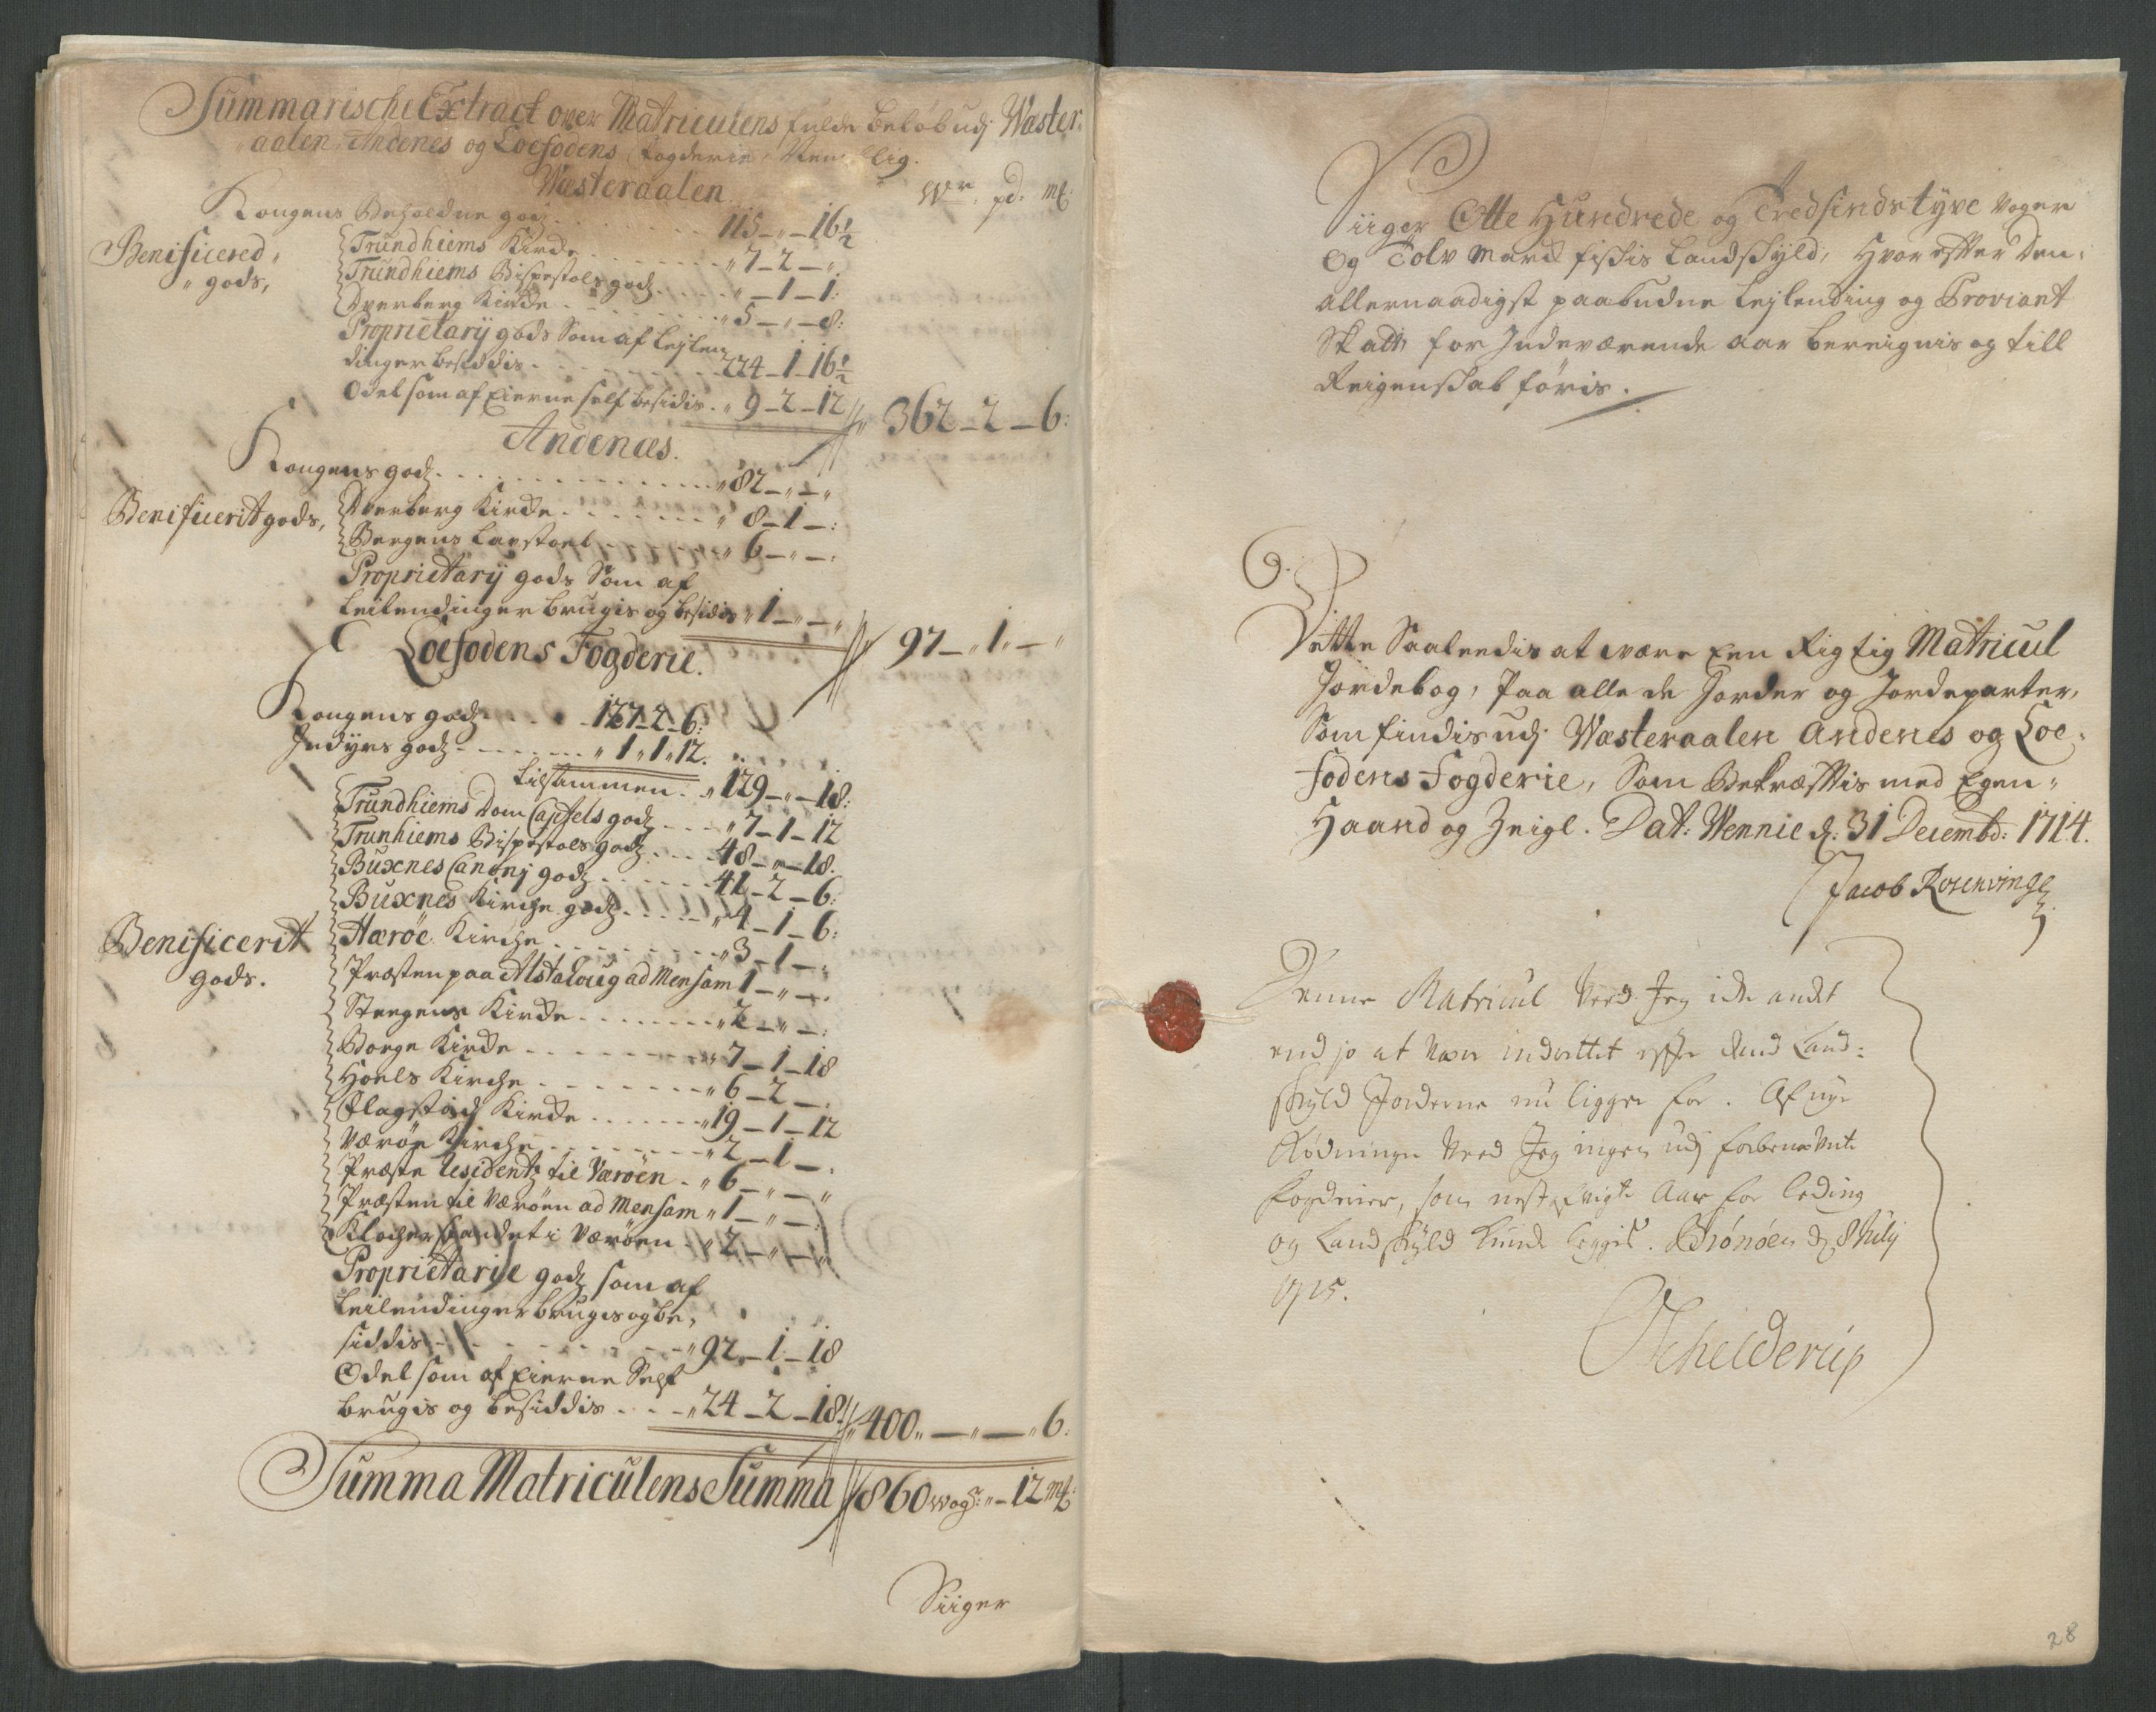 Summarische Extract over Matriculens fulde beløb udj Wæster-
aalen, Andenes og Loefodens fogderie, Nemblig.
Wæsteraalen
Wer. pd. mk.
Kongens Beholdne godz . . . 115 - „ - 16½
Benificered „
„ gods,
Trundhiems Kirche . . . „ 7 - 2 - „
Trundhiems Bispestols godz . . . „ - 1 - 1:
Dverberg Kirche . . . „ 5 - „ - 8:
Proprietarij gods Som af Leylen
dinger besiddis . . . 224 - 1 - 16½
Odel som af Eierne self besidis . „ 9 - 2 - 12 // „ 362 - 2 - 6:
Andenæs.
Kongens godz . . . „ 82 - „ - „
Benificerit gods,
Dverberg Kirche . . . „ 8 - 1 - :
Bergens Laustoel . . . „ 6 - „ - :
Proprietarij gods Som af
Leilendinger brugis og besidis „ 1 - „ - „ // 97 - „ 1 „ - „
Loefodens Fogderie.
Kongens godz . . . 127 - 2 - 6:
Indÿrs godz . . . „ 1 „ 1 „ 12.
tilsammen . „ 129 - „ - 18:
Benificerit
gods.
Trundhiems Dom Capitels godz . . . „ 7 - 1 - 12
Trunhiems Bispestols godz . . . 48 - „ - 18.
Buxnes Canonj godz . . . 41 - 2 - 6:
Buxnes Kirche godz . . . „ 4 - 1 - 6:
Hæröe Kirche . . . „ 3 - 1 - „
Præsten paa Alstahoug ad Mensam 1 - „ - „
Stegens Kirche . . . „ 2 - „ - :
Borge Kirche . . . „ 7 - 1 - 18
Hoels Kirche . . . „ 6 - 2 - :
Flagstad Kirche . . . „ 19 - 1 - 12
Værøe Kirche . . . „ 2 - 1 - .
Præste Residentz til Værøen . „ 6 - „ - „
Præsten til Værøen ad Mensam „ 1 - „ - :
Klocher landet i Værøen . „ 2 - „ - „
Proprietarije godz som af
Leilendinger brugis og be„
siddis . . . „ 92 - 1 - 18
Odel som af Eierne Self
brugis og besiddis . . . „ 24 - 2 - 18 // „ 400 „ - „ - „ 6:
Summa Matriculens Summa // 860 wogr: „ - 12 mk:
Siiger
Siiger Otte Hundrede og Tredsindstyve Voger
Og Tolv Marck fiskis Landskyld, Hvor effter Den„
allernaadigst paabudne Leylending og Proviant
Skatt, for Indeværende aar bereignis og till
Reigenskab føris.
Dette Saaleedis at være Een Rigtig Matricul
Jordebog, Paa alle de Jorder og Jordeparter,
Som findis udj Wæsteraalen Andenes og Loe„
fodens Fogderie, Som Bekræfftis med Egen„
Haand og Zeigl. Dat: Wennie d: 31 Decembd: 1714.
Jacob Rosenvinge
Denne Matricul Veed Jeg icke andet
end jo at være inderettet effter dend Land-
skyld Jorderne nu ligger for. Af nye
Rødninger Veed Jeg ingen udj forbenævnte
fogderier, som nest afvigte Aar for leding
og Landskyld kunde leggis. Brønøen d. 8 July
1715.
Schelderup
28